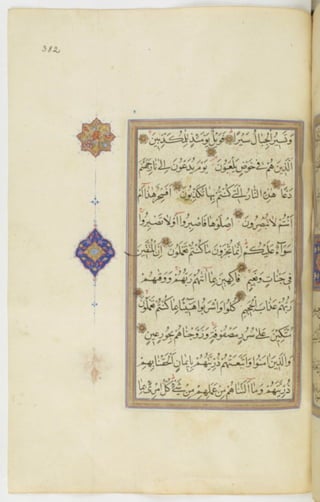 382
وَتَسِيرُ الْجِبَالُ سَيْرًا فَوَيْلٌ يَوْمَئِذٍ لِلْمُكَذِّبِينَ
الَّذِينَ هُمْ فِي خَوْضٍ يَلْعَبُونَ يَوْمَ يُدَعُّونَ إِلَى نَارِ جَهَنَّمَ
دَعًّا هَذِهِ النَّارُ الَّتِي كُنْتُمْ بِهَا تُكَذِّبُونَ أَفَسِحْرٌ هَذَا أَمْ
أَنْتُمْ لَا تُبْصِرُونَ اصْلَوْهَا فَاصْبِرُوا أَوْ لَا تَصْبِرُوا
سَوَاءٌ عَلَيْكُمْ إِنَّمَا تُجْزَوْنَ مَا كُنْتُمْ تَعْمَلُونَ إِنَّ الْمُتَّقِينَ
فِي جَنَّاتٍ وَنَعِيمٍ فَاكِهِينَ بِمَا آتَاهُمْ رَبُّهُمْ وَوَقَاهُمْ
رَبُّهُمْ عَذَابَ الْجَحِيمِ كُلُوا وَاشْرَبُوا هَنِيئًا بِمَا كُنْتُمْ تَعْمَلُونَ
مُتَّكِئِينَ عَلَى سُرُرٍ مَصْفُوفَةٍ وَزَوَّجْنَاهُمْ بِحُورٍ عِينٍ
وَالَّذِينَ آمَنُوا وَاتَّبَعَتْهُمْ ذُرِّيَّتُهُمْ بِإِيمَانٍ أَلْحَقْنَا بِهِمْ
ذُرِّيَّتَهُمْ وَمَا أَلَتْنَاهُمْ مِنْ عَمَلِهِمْ مِنْ شَيْءٍ كُلُّ امْرِئٍ بِمَا